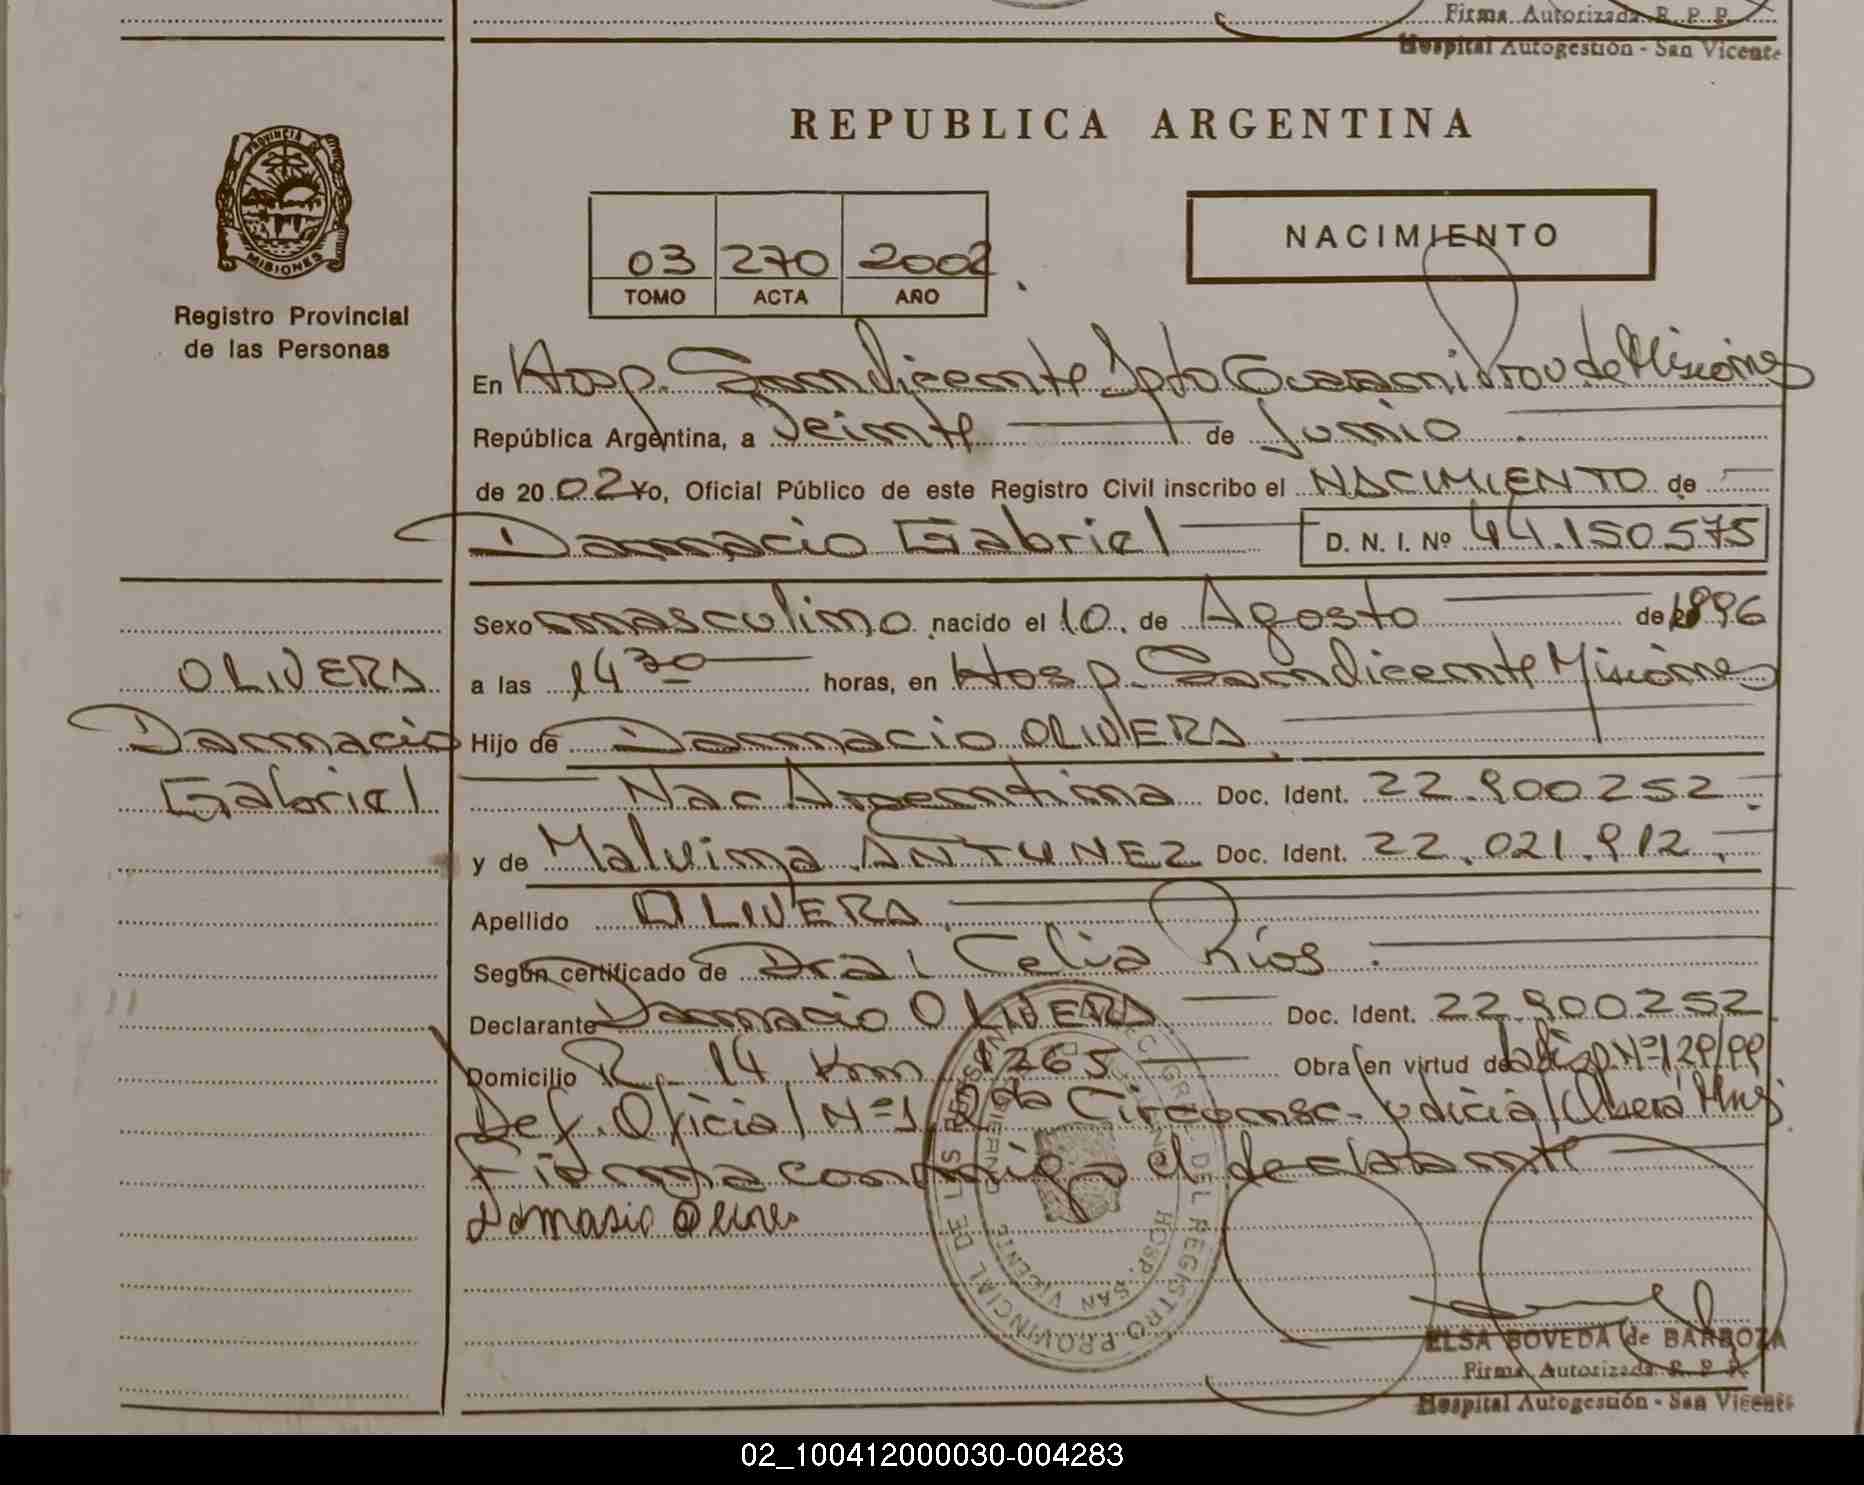 Firma Autorizada R. P. P.
Hospital Autogestión - San Vicente
REPUBLICA ARGENTINA
PROVINCIA DE
MISIONES
Registro Provincial
de las Personas
03 270 2002
TOMO ACTA AÑO
NACIMIENTO
En Hosp. San Vicente Dpto Guarani Prov de Misiones
República Argentina, a Veinte de Junio
de 20 02 Yo, Oficial Público de este Registro Civil inscribo el NACIMIENTO de
Damacio Gabriel D. N. I. Nº 44.150.575
Sexo masculino nacido el 10 de Agosto de 1996
a las 14 30 horas, en Hosp. San Vicente Misiones
Hijo de Damacio OLIVERA
Nac Argentina Doc. Ident. 22.900.252
y de Malvina ANTUNEZ Doc. Ident. 22.021.912
Apellido OLIVERA
Según certificado de Dra. Celia Ríos
Declarante Damacio OLIVERA Doc. Ident. 22.900.252
Domicilio R. 14 Km 1265 Obra en virtud de Nº 129/99
Def. Oficial Nº 1 2da Circunsc. Judicial Oberá Mnes
Firma conmigo el declarante
Damasio
OLIVERA
Damacio
Gabriel
REGISTRO PROVINCIAL DE LAS PERSONAS
HOSP. SAN VICENTE
ELSA BOVEDA de BARBOZA
Firma Autorizada R. P. P.
Hospital Autogestión - San Vicente
02_100412000030-004283